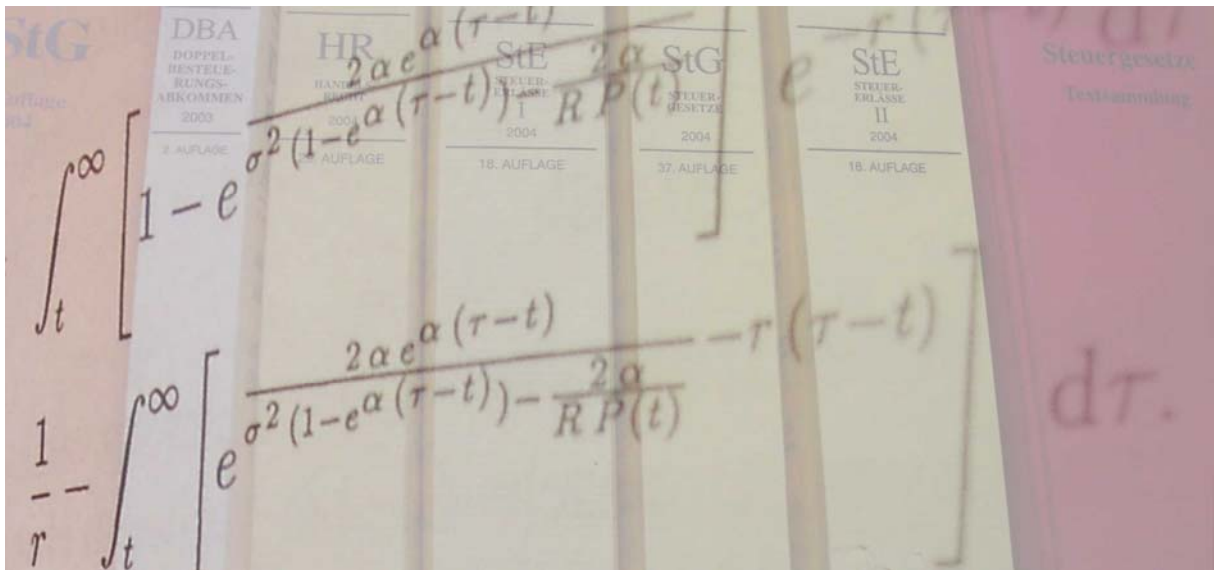 StG
DBA
DOPPEL-
BESTEUE-
RUNGS-
ABKOMMEN
2003
2. AUFLAGE
HR
2004
AUFLAGE
StE
STEUER-
ERLÄSSE
I
2004
18. AUFLAGE
StG
STEUER-
GESETZE
2004
37. AUFLAGE
StE
STEUER-
ERLÄSSE
II
2004
18. AUFLAGE
Steuergesetze
Textsammlung
∫_t^∞ [1 − e^{\frac{2 α e^{α (τ−t)}}{σ^2 (1−e^{α (τ−t)})−\frac{2 α}{R P(t)}}}] e^{−r (τ−t)} dτ
\frac{1}{r} − ∫_t^∞ [e^{\frac{2 α e^{α (τ−t)}}{σ^2 (1−e^{α (τ−t)})−\frac{2 α}{R P(t)}} −r (τ−t)}] dτ.